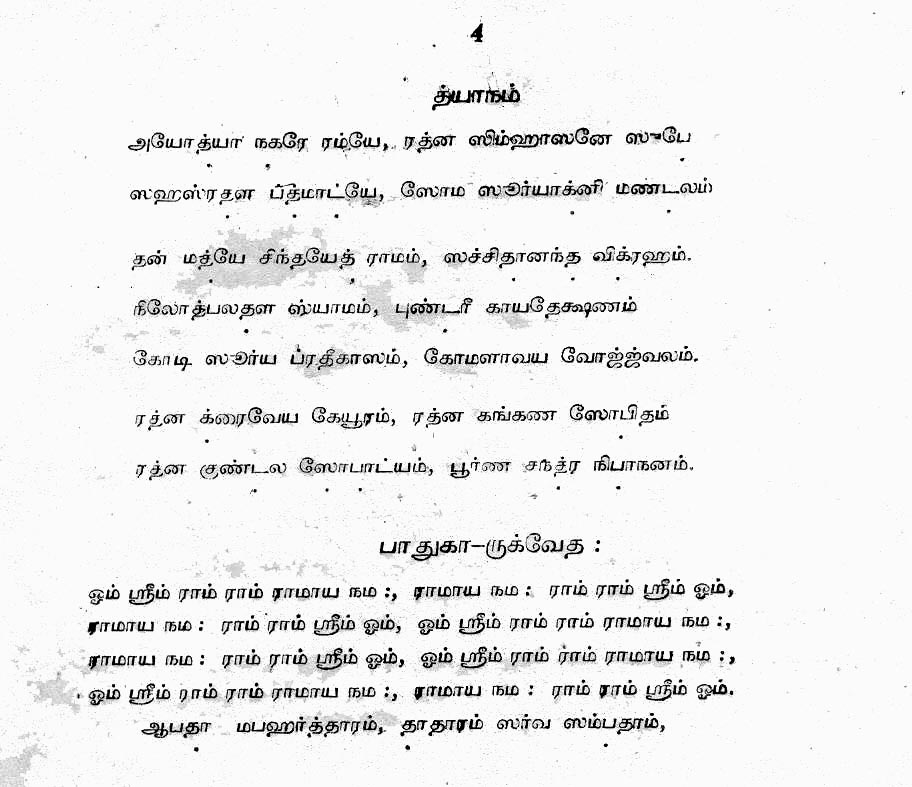 4
த்யாநம்
அயோத்யா நகரே ரம்யே, ரத்ன ஸிம்ஹாஸனே ஸுபே
ஸஹஸ்ரதள பத்மாட்யே, ஸோம ஸூர்யாக்னி மண்டலம்
தன் மத்யே சிந்தயேத் ராமம், ஸச்சிதானந்த விக்ரஹம்.
நிலோத்பலதள ஸ்யாமம், புண்டரீ காயதேக்ஷணம்
கோடி ஸூர்ய ப்ரதீகாஸம், கோமளாவய வோஜ்ஜ்வலம்.
ரத்ன க்ரைவேய கேயூரம், ரத்ன கங்கண ஸோபிதம்
ரத்ன குண்டல ஸோபாட்யம், பூர்ண சந்த்ர நிபாநனம்.
பாதுகா-ருக்வேத :
ஓம் ஸ்ரீம் ராம் ராம் ராமாய நம :, ராமாய நம : ராம் ராம் ஸ்ரீம் ஓம்,
ராமாய நம : ராம் ராம் ஸ்ரீம் ஓம், ஓம் ஸ்ரீம் ராம் ராம் ராமாய நம :,
ராமாய நம : ராம் ராம் ஸ்ரீம் ஓம், ஓம் ஸ்ரீம் ராம் ராம் ராமாய நம :,
ஓம் ஸ்ரீம் ராம் ராம் ராமாய நம :, ராமாய நம : ராம் ராம் ஸ்ரீம் ஓம்.
ஆபதா மபஹர்த்தாரம், தாதாரம் ஸர்வ ஸம்பதாம்,